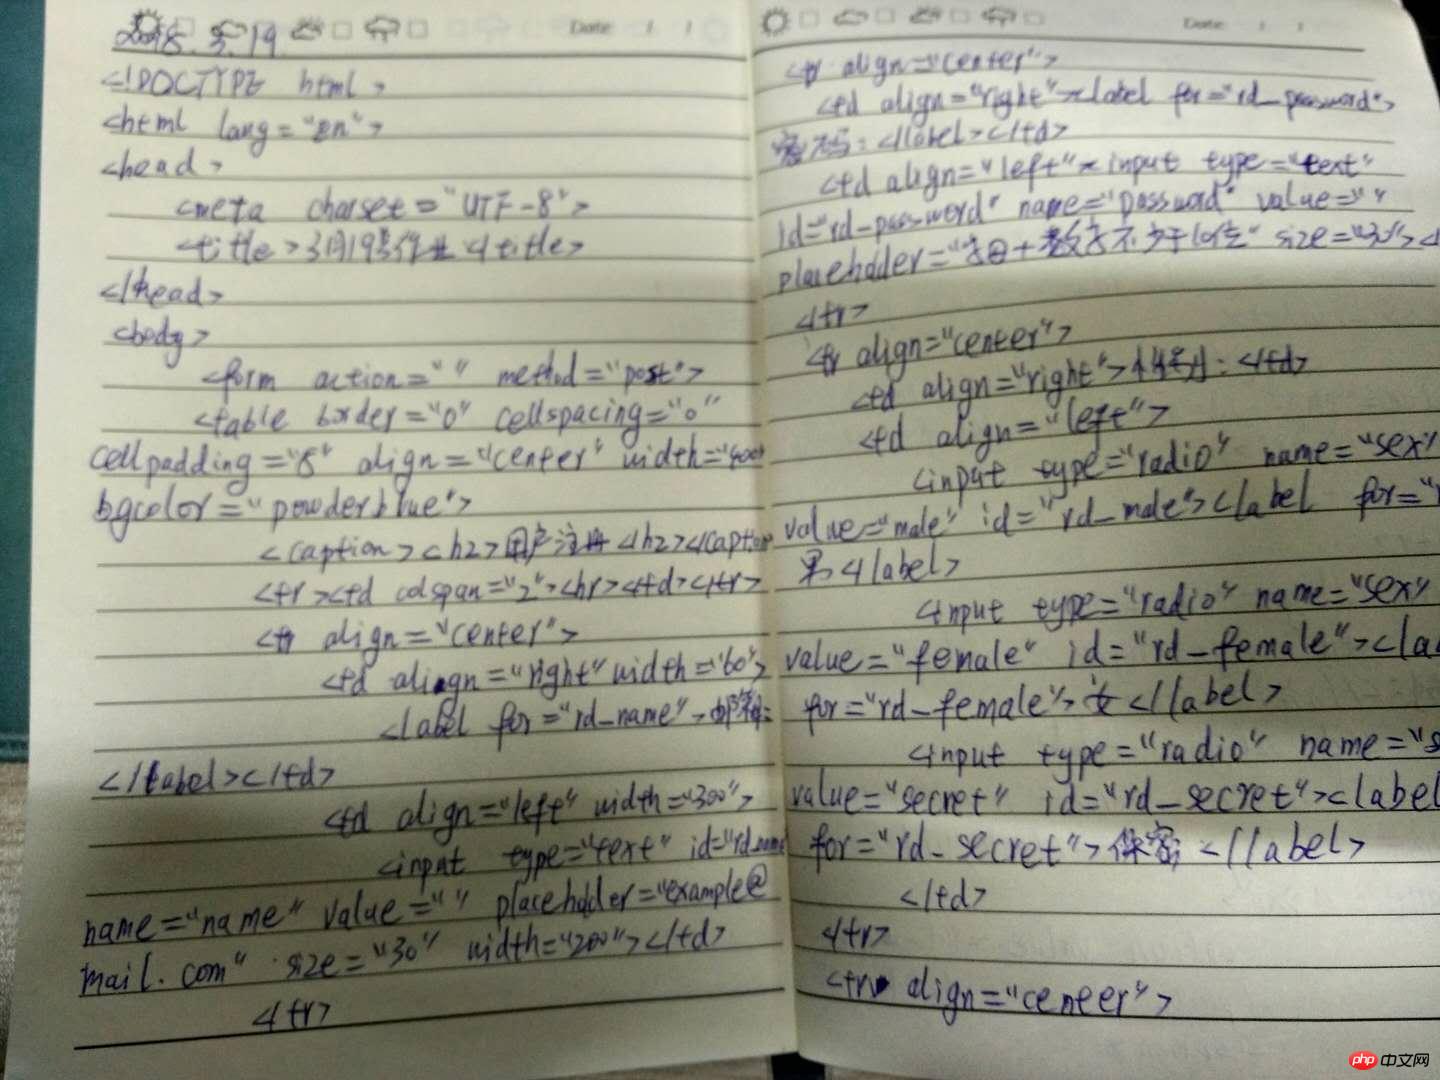 Date / /
2018.3.19
<!DOCTYPE html>
<html lang="en">
<head>
<meta charset="UTF-8">
<title>3月19号作业</title>
</head>
<body>
<form action="" method="post">
<table border="0" cellspacing="0"
cellpadding="5" align="center" width="400"
bgcolor="powderblue">
<caption><h2>用户注册</h2></caption
<tr><td colspan="2"><hr></td></tr>
<tr align="center">
<td align="right" width="60">
<label for="rd-name">邮箱:
</label></td>
<td align="left" width="300">
<input type="text" id="rd_name
name="name" value="" placehdder="example@
mail.com" size="30" width="200"></td>
</tr>
Date / /
<tr align="center">
<td align="right"><label for="rd-password">
密码:</label></td>
<td align="left"><input type="text"
id="rd-password" name="password" value=""
placehdder="字母+数字不少于10位" size="30"><
</tr>
<tr align="center">
<td align="right">性别:</td>
<td align="left">
<input type="radio" name="sex"
value="male" id="rd-male"><label for="
男</label>
<input type="radio" name="sex"
value="female" id="rd-female"><la
for="rd-female">女</label>
<input type="radio" name="s
value="secret" id="rd-secret"><label
for="rd-secret">保密</label>
</td>
</tr>
<tr align="center">
php 中文网